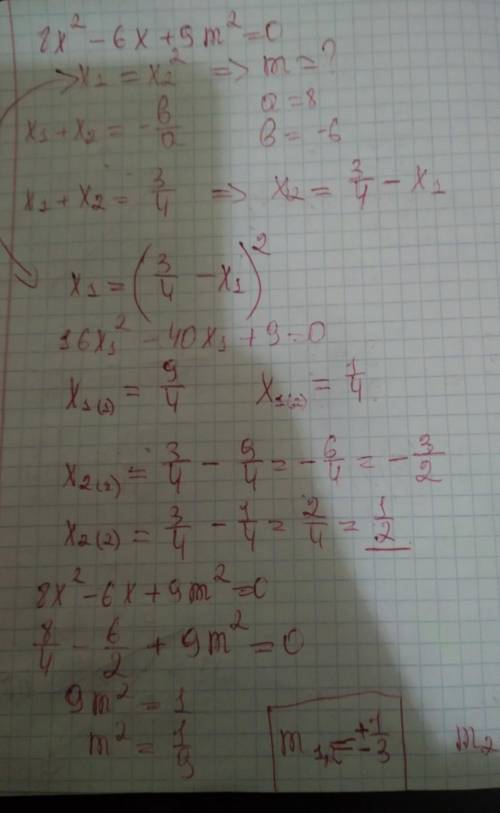 8x² - 6x + 9m² = 0
x₁ = x₂² => m = ?
a = 8
x₁ + x₂ = -b/a b = -6
x₁ + x₂ = 3/4 => x₂ = 3/4 - x₁
x₁ = (3/4 - x₁)²
16x₁² - 40x₁ + 9 = 0
x₁₍₁₎ = 9/4 x₁₍₂₎ = 1/4
x₂₍₁₎ = 3/4 - 9/4 = -6/4 = -3/2
x₂₍₂₎ = 3/4 - 1/4 = 2/4 = 1/2
8x² - 6x + 9m² = 0
8/4 - 6/2 + 9m² = 0
9m² = 1
m² = 1/9 m₁,₂ = ±1/3 m₂